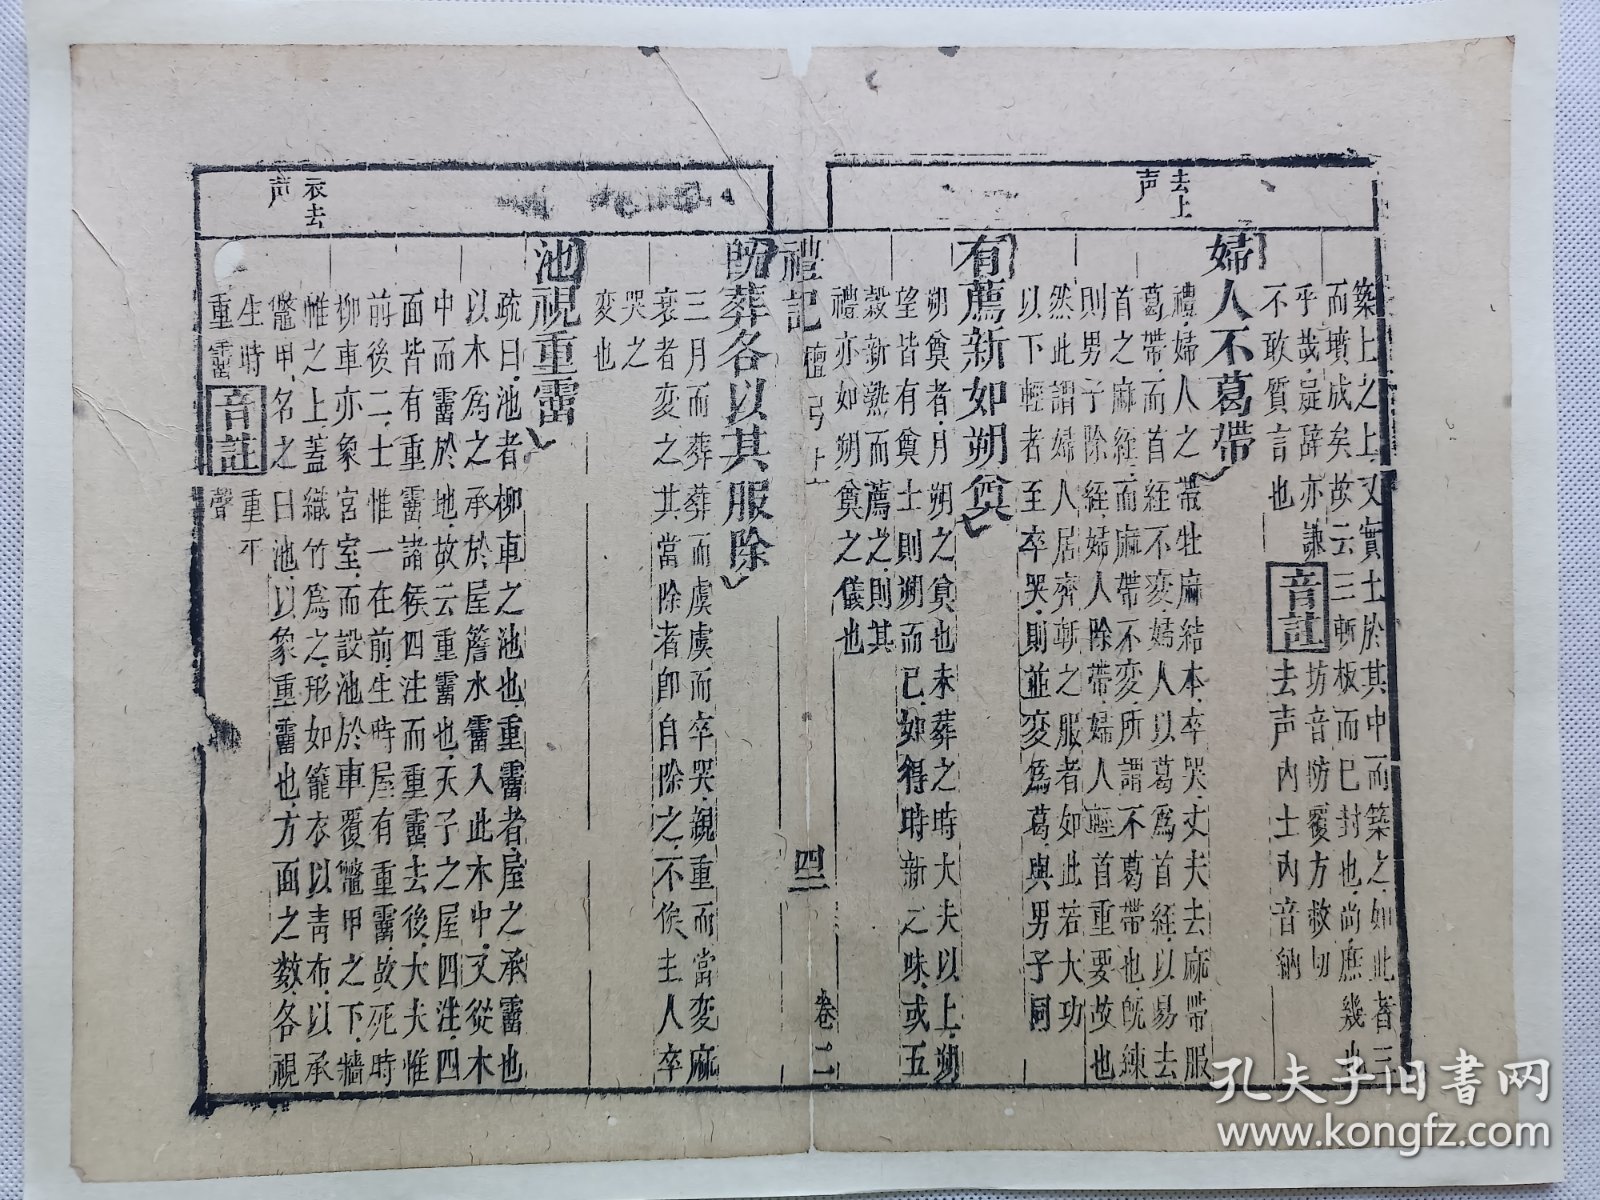 去上
声
築土之上又實土於其中而築之如此者三
而墳成矣故云三斬板而已封也尚庶幾也
乎哉疑辞亦謙
音註
坊音防覆方救切
不敢質言也
去声内土内音納
婦人不葛帶
禮婦人之帶牡麻結本卒哭丈夫去麻帶服
葛帶而首絰不変婦人以葛為首絰以易去
首之麻絰而麻帶不変所謂不葛帶也既練
則男子除絰婦人除帶婦人輕首重要故也
然此謂婦人居齊斬之服者如此若大功
以下輕者至卒哭則並変為葛與男子同
有薦新如朔奠
朔奠者月朔之奠也未葬之時大夫以上朔
望皆有奠士則朔而已如得時新之味或五
穀新熟而薦之則其
禮亦如朔奠之儀也
禮記
檀弓上
四二
卷二
既葬各以其服除
三月而葬葬而虞虞而卒哭親重而當変麻
衰者変之其當除者即自除之不俟主人卒
哭之
変也
池視重霤
疏曰池者柳車之池也重霤者屋之承霤也
以木為之承於屋簷水霤入此木中又從木
中而霤於地故云重霤也天子之屋四注四
面皆有重霤諸侯四注而重霤去後大夫惟
前後二士惟一在前生時屋有重霤故死時
柳車亦象宮室而設池於車覆鱉甲之下牆
帷之上蓋織竹為之形如籠衣以青布以承
鱉甲名之曰池以象重霤也方面之数各視
生時
重霤
音註
重平
聲
衣去
声
孔夫子旧书网
www.kongfz.com